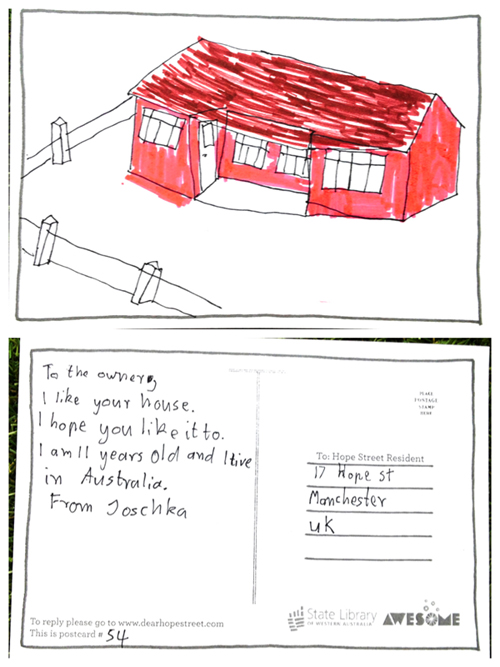 To the owner,
I like your house.
I hope you like it to.
I am 11 years old and I live
in Australia.
From Joschka
To reply please go to www.dearhopestreet.com
This is postcard # 54
PLACE
POSTAGE
STAMP
HERE
To: Hope Street Resident
17 Hope st
Manchester
UK
State Library
OF WESTERN AUSTRALIA
AWESOME